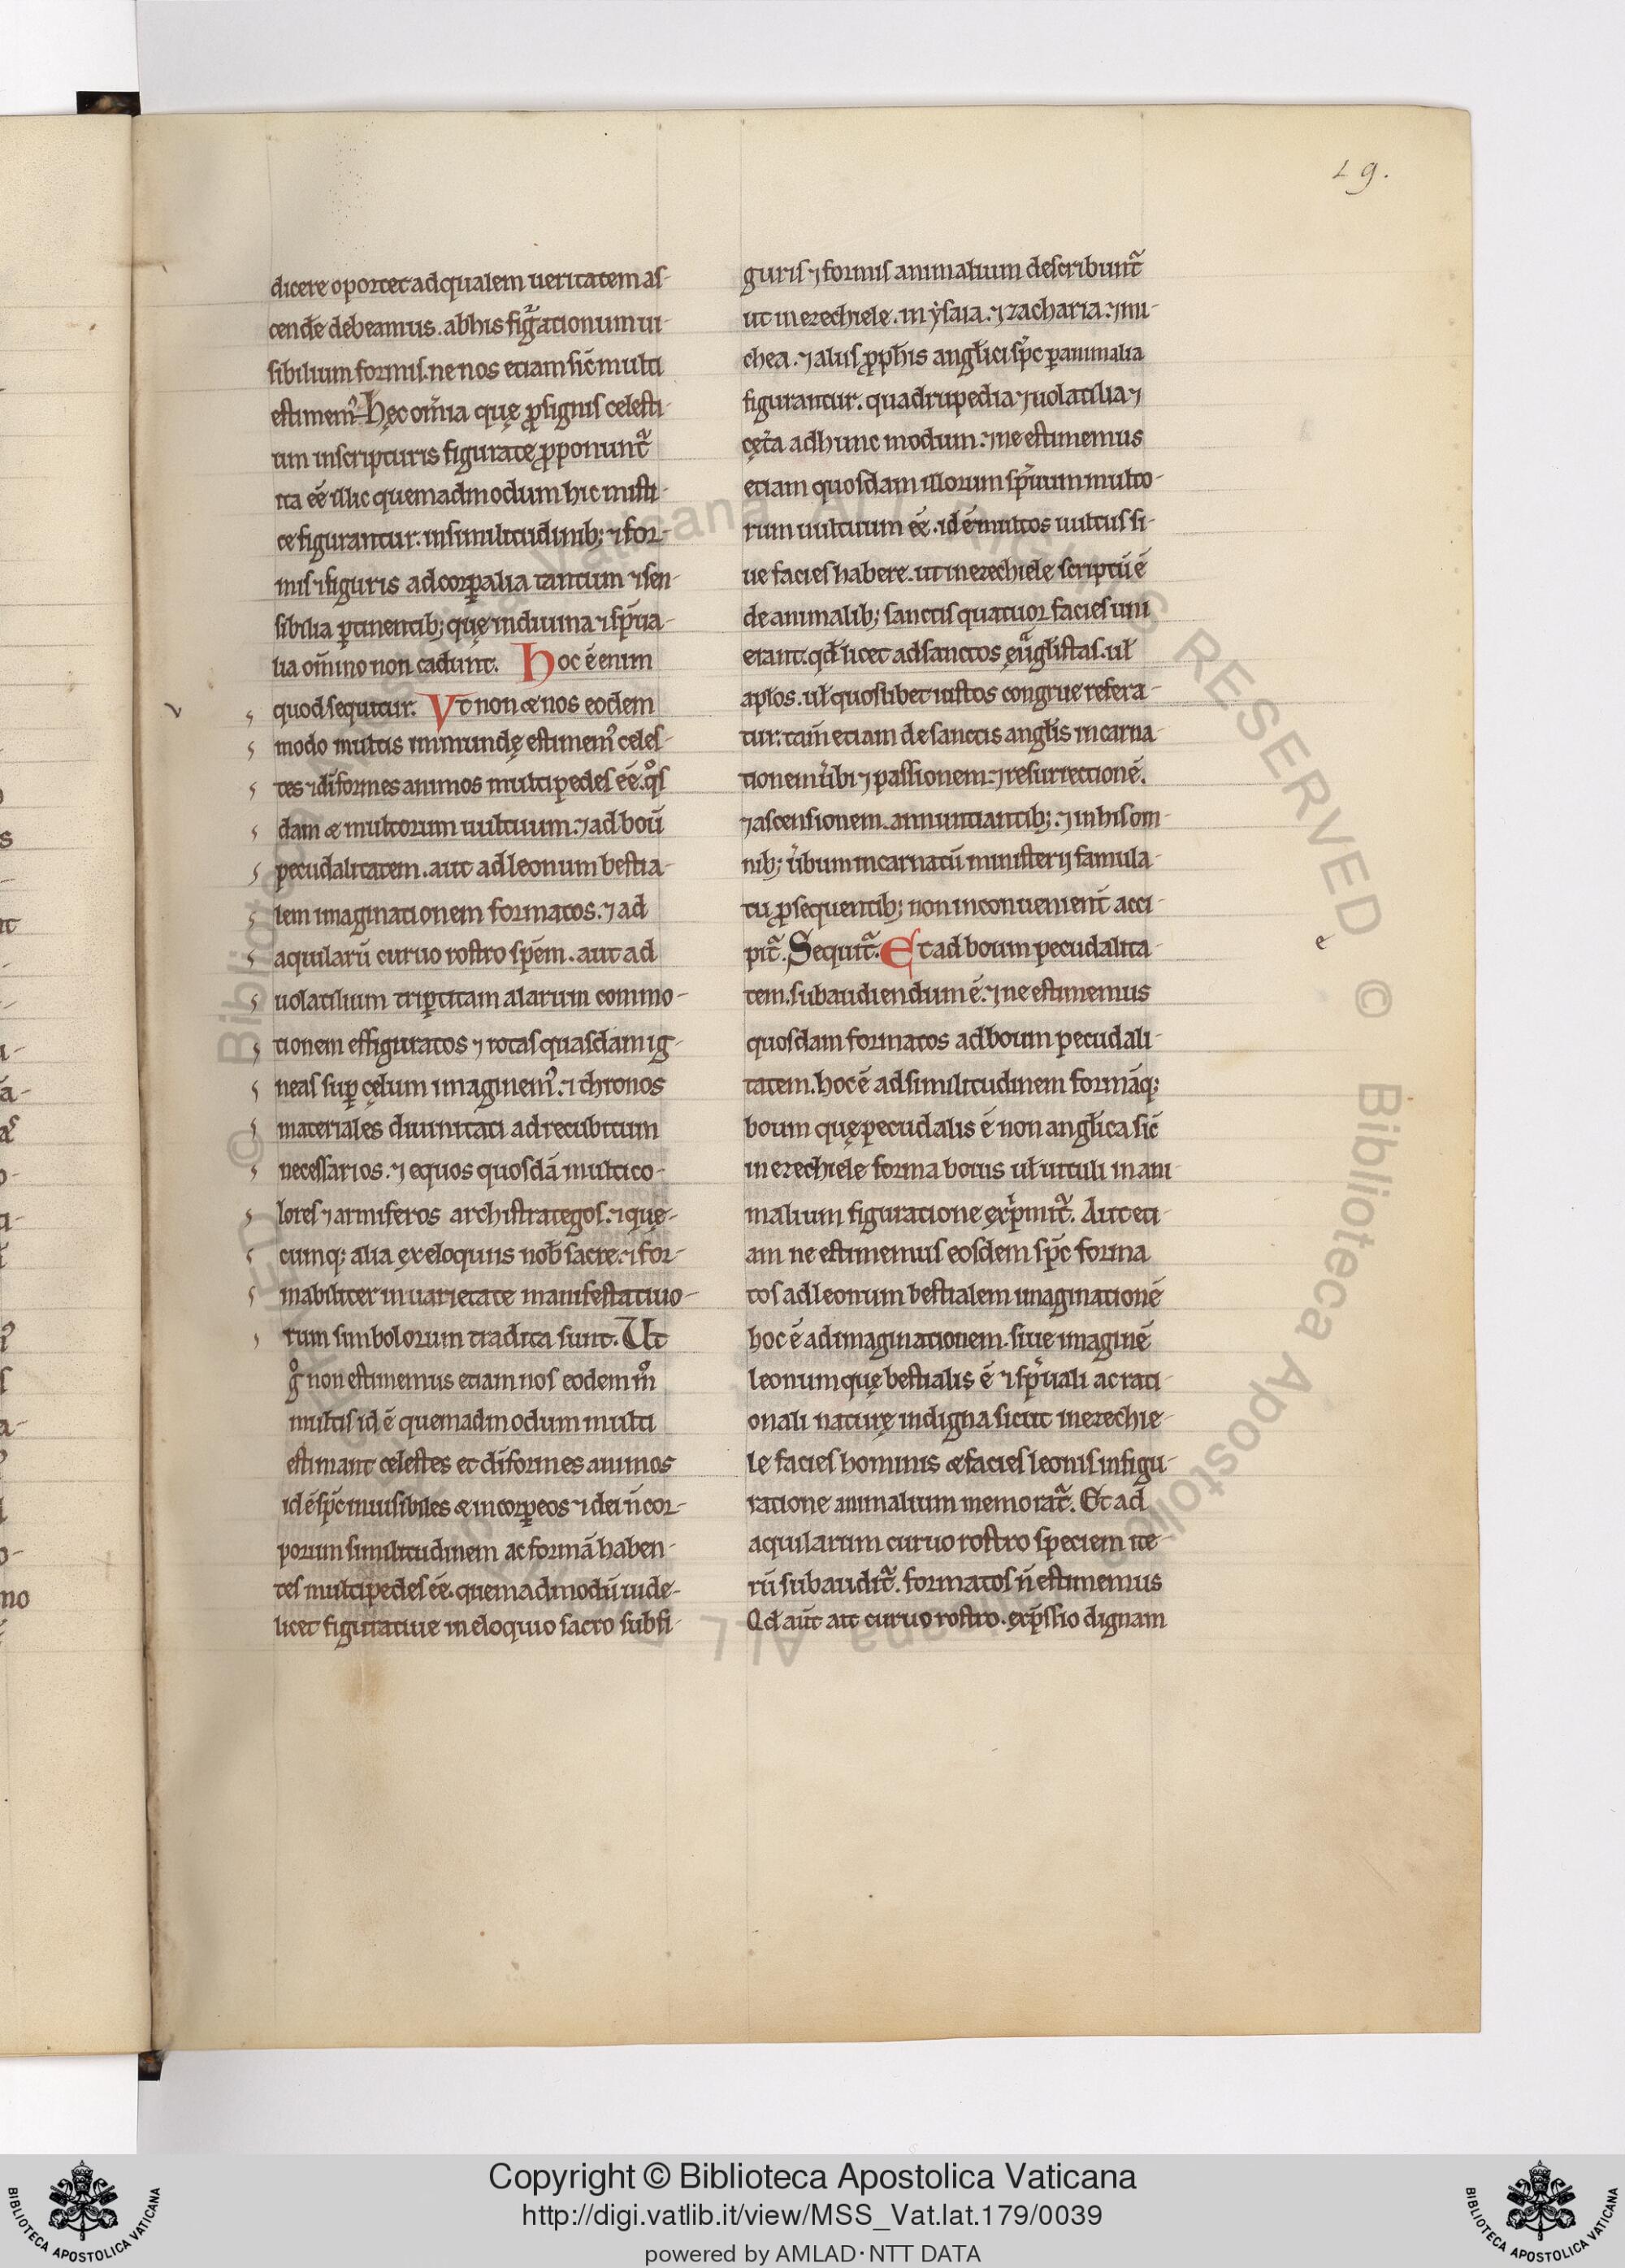 19.
dicere oportet ad qualem ueritatem as-
cendē debeamus. ab his figᷓationum ui-
sibilium formis. ne nos etiam sic̄ multi
estimemꝰ. Hęc om̄ia quę ꝓ signis celesti-
um in scripturis figurate ꝓponunt᷑
ita eē illic quemadmodum hic misti-
ce figurantur. in similitudinib; ⁊ for-
mis ⁊ figuris ad corꝑalia tantum ⁊ sen-
sibilia ꝑtinentib; quę in diuina ⁊ sp̄ua-
lia om̄ino non cadunt. Hoc ē enim
quod sequitur. Vt non & nos eodem
modo multis immundę estimemꝰ celes-
tes ⁊ diformes animos multipedes eē. qͦs
dam & multorum uultuum. ⁊ ad boū
pecudalitatem. aut ad leonum bestia-
lem imaginationem formatos. ⁊ ad
aquilarū curuo rostro sp̄em. aut ad
uolatilium triꝑtitam alarum commo-
tionem effiguratos ⁊ rotas quasdam ig-
neas suꝑ cęlum imaginemꝰ. ⁊ thronos
materiales diuinitati ad recubitum
necessarios. ⁊ equos quosdā multico-
lores ⁊ armiferos archistrategos. ⁊ quę-
cumq; alia ex eloquiis nob̄ sacre. ⁊ for-
mabiliter in uarietate manifestatiuo-
rum simbolorum tradita sunt. Ut
gͦ non estimemus etiam nos eodem mͦ
multis id ē quemadmodum multi
estimant celestes et diformes animos
id ē sp̄c inuisibiles & incorꝑeos ⁊ dei n̄ cor-
porum similitudinem ac formā haben-
tes multipedes eē. quemadmodū uide-
licet figuratiue in eloquio sacro sub fi-
guris ⁊ formis animalium describunt᷑
ut in ezechiele. in ysaia. ⁊ zacharia. ⁊ mi-
chea. ⁊ aliis ꝓph̄is angl̄ici sp̄c ꝑ animalia
figurantur. quadrupedia ⁊ uolatilia ⁊
cęt̄a ad hunc modum. ⁊ ne estimemus
etiam quosdam illorum sp̄ituum multo-
rum uultuum eē. id ē multos uultus si-
ue facies habere. ut in ezechiele scriptū ē
de animalib; sanctis quatuor facies uni
erant. qd̄ licet ad sanctos euᷓgl̄istas. ul̄
apłos. ul̄ quoslibet iustos congrue refera-
tur. tam̄ etiam de sanctis angl̄is incarna-
tionem u̓bi ⁊ passionem. ⁊ resurrectionē.
⁊ ascensionem. annuntiantib;. ⁊ in his om-
nib; u̓bum incarnatū ministerii famula-
tu ꝓsequentib; non inconuenient̄ acci-
pit᷑. Sequit᷑. Et ad boum pecudalita-
tem. subaudiendum ē. ⁊ ne estimemus
quosdam formatos ad boum pecudali-
tatem. hoc ē ad similitudinem formāq;
boum quę pecudalis ē non angl̄ica sic̄
in ezechiele forma bouis ul̄ uituli in ani-
malium figuratione exp̓mit᷑. Aut eti-
am ne estimemus eosdem sp̄c forma
tos ad leonum bestialem imaginationē
hoc ē ad imaginationem. siue imaginē
leonum quę bestialis ē ⁊ sp̓uali ac rati-
onali naturę indigna sicut in ezechie-
le facies hominis & facies leonis in figu-
ratione animalium memorat᷑. Et ad
aquilarum curuo rostro speciem ite-
rū subaudit᷑. formatos n̄ estimemus
Qd̄ aut̄ ait curuo rostro. exp̄ssio dignam
v
e
Copyright © Biblioteca Apostolica Vaticana
http://digi.vatlib.it/view/MSS_Vat.lat.179/0039
powered by AMLAD·NTT DATA
BIBLIOTECA APOSTOLICA VATICANA
BIBLIOTECA APOSTOLICA VATICANA